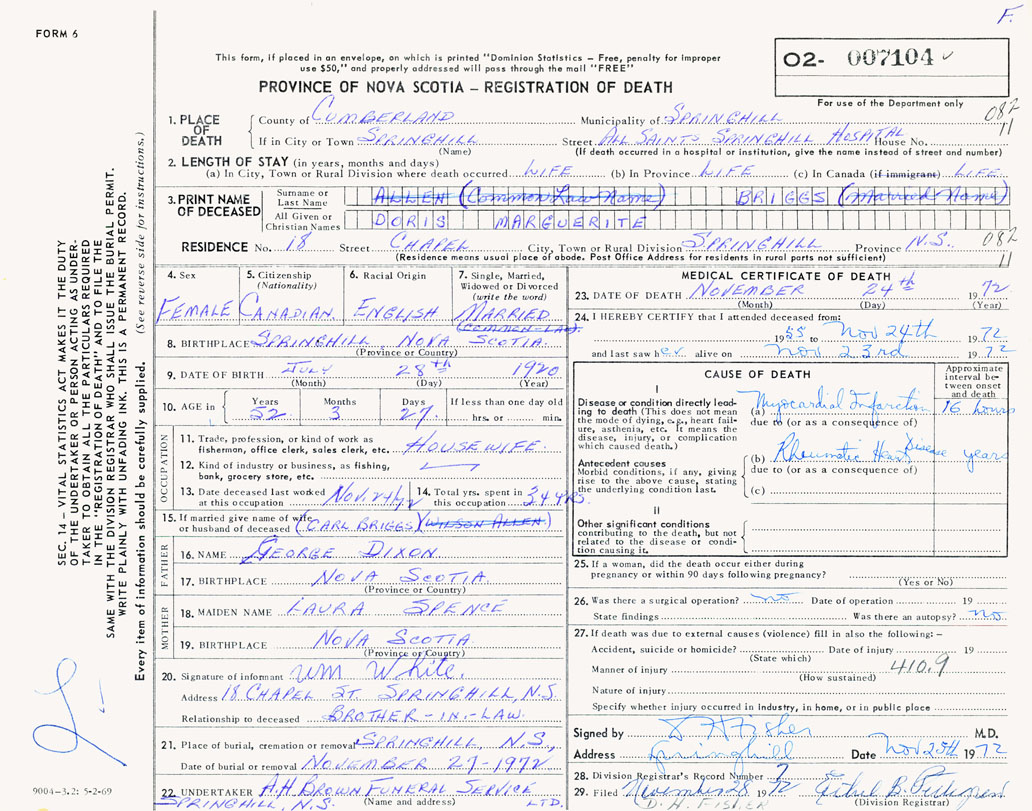 F.
FORM 6
This form, if placed in an envelope, on which is printed "Dominion Statistics – Free, penalty for improper
use $50," and properly addressed will pass through the mail "FREE"
O2- 007104
For use of the Department only
PROVINCE OF NOVA SCOTIA – REGISTRATION OF DEATH
082
11
1. PLACE OF DEATH
County of CUMBERLAND Municipality of SPRINGHILL
If in City or Town SPRINGHILL Street ALL SAINTS SPRINGHILL HOSPITAL House No.
(Name) (If death occurred in a hospital or institution, give the name instead of street and number)
2. LENGTH OF STAY (in years, months and days)
(a) In City, Town or Rural Division where death occurred LIFE (b) In Province LIFE (c) In Canada (if immigrant) LIFE
3. PRINT NAME OF DECEASED
Surname or Last Name ALLEN (Common Law Name) BRIGGS (Married Name)
All Given or Christian Names DORIS MARGUERITE
RESIDENCE No. 18 Street CHAPEL City, Town or Rural Division SPRINGHILL Province N.S.
082
11
(Residence means usual place of abode. Post Office Address for residents in rural parts not sufficient)
4. Sex
FEMALE
5. Citizenship
(Nationality)
CANADIAN
6. Racial Origin
ENGLISH
7. Single, Married,
Widowed or Divorced
(write the word)
MARRIED
(COMMON-LAW)
8. BIRTHPLACE SPRINGHILL NOVA SCOTIA.
(Province or Country)
9. DATE OF BIRTH JULY 28th 1920
(Month) (Day) (Year)
10. AGE in
Years Months Days If less than one day old
52 3 27 hrs. or min.
OCCUPATION
11. Trade, profession, or kind of work as
fisherman, office clerk, sales clerk, etc. HOUSEWIFE
12. Kind of industry or business, as fishing,
bank, grocery store, etc.
13. Date deceased last worked
at this occupation NOV. 24/72
14. Total yrs. spent in
this occupation 34 YRS.
15. If married give name of wife
or husband of deceased (CARL BRIGGS) (WILSON ALLEN)
FATHER
16. NAME GEORGE DIXON
17. BIRTHPLACE NOVA SCOTIA
(Province or Country)
MOTHER
18. MAIDEN NAME LAURA SPENCE
19. BIRTHPLACE NOVA SCOTIA
(Province or Country)
20. Signature of informant Wm White.
Address 18 CHAPEL ST. SPRINGHILL, N.S.
Relationship to deceased BROTHER-IN-LAW.
21. Place of burial, cremation or removal SPRINGHILL, N.S.,
Date of burial or removal NOVEMBER 27-1972
22. UNDERTAKER A.H. BROWN FUNERAL SERVICE LTD.
SPRINGHILL, N.S. (Name and address)
MEDICAL CERTIFICATE OF DEATH
23. DATE OF DEATH NOVEMBER 24th 1972
(Month) (Day) (Year)
24. I HEREBY CERTIFY that I attended deceased from:
1955 to Nov 24th 1972
and last saw her alive on Nov 23rd 1972
CAUSE OF DEATH
Approximate
interval be-
tween onset
and death
I
Disease or condition directly lead-
ing to death (This does not mean
the mode of dying, e.g., heart fail-
ure, asthenia, etc. It means the
disease, injury, or complication
which caused death.)
(a) Myocardial Infarction 16 hours
due to (or as a consequence of)
Antecedent causes
Morbid conditions, if any, giving
rise to the above cause, stating
the underlying condition last.
(b) Rheumatic Heart Disease years
due to (or as a consequence of)
(c)
II
Other significant conditions
contributing to the death, but not
related to the disease or condi-
tion causing it.
25. If a woman, did the death occur either during
pregnancy or within 90 days following pregnancy?
(Yes or No)
26. Was there a surgical operation? no Date of operation 19
State findings Was there an autopsy? no
27. If death was due to external causes (violence) fill in also the following: –
Accident, suicide or homicide? Date of injury 19
(State which)
Manner of injury 410.9
(How sustained)
Nature of injury
Specify whether injury occurred in industry, in home, or in public place
Signed by D H Fisher M.D.
Address Springhill Date Nov 25th 1972
28. Division Registrar's Record Number 7
29. Filed November 28 1972 Ethel B.
D. H. FISHER (Division Registrar)
SEC. 14 – VITAL STATISTICS ACT MAKES IT THE DUTY
OF THE UNDERTAKER OR PERSON ACTING AS UNDER-
TAKER TO OBTAIN ALL THE PARTICULARS REQUIRED
IN THE "REGISTRATION OF DEATH" AND TO FILE THE
SAME WITH THE DIVISION REGISTRAR WHO SHALL ISSUE THE BURIAL PERMIT.
WRITE PLAINLY WITH UNFADING INK. THIS IS A PERMANENT RECORD.
Every item of information should be carefully supplied. (See reverse side for instructions.)
9004-3.2: 5-2-69